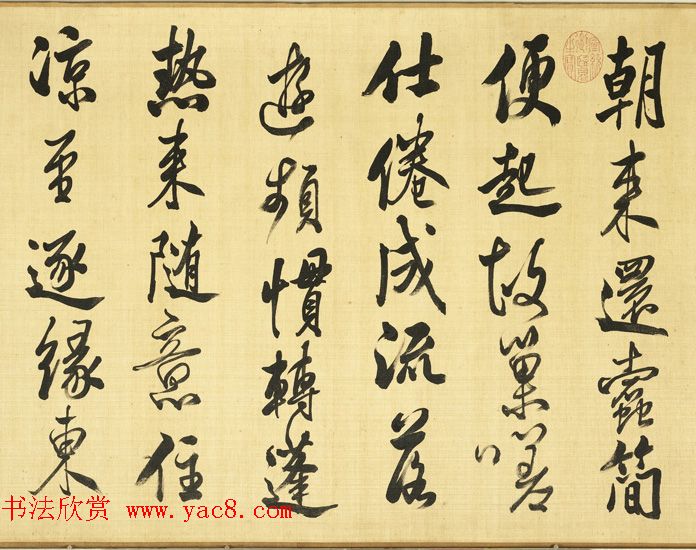 朝来還蠹簡
便起故巢嗟
仕倦成流落
遊頻慣轉蓬
熱来随意住
凉至逐緣東
书法欣赏 www.yac8.com